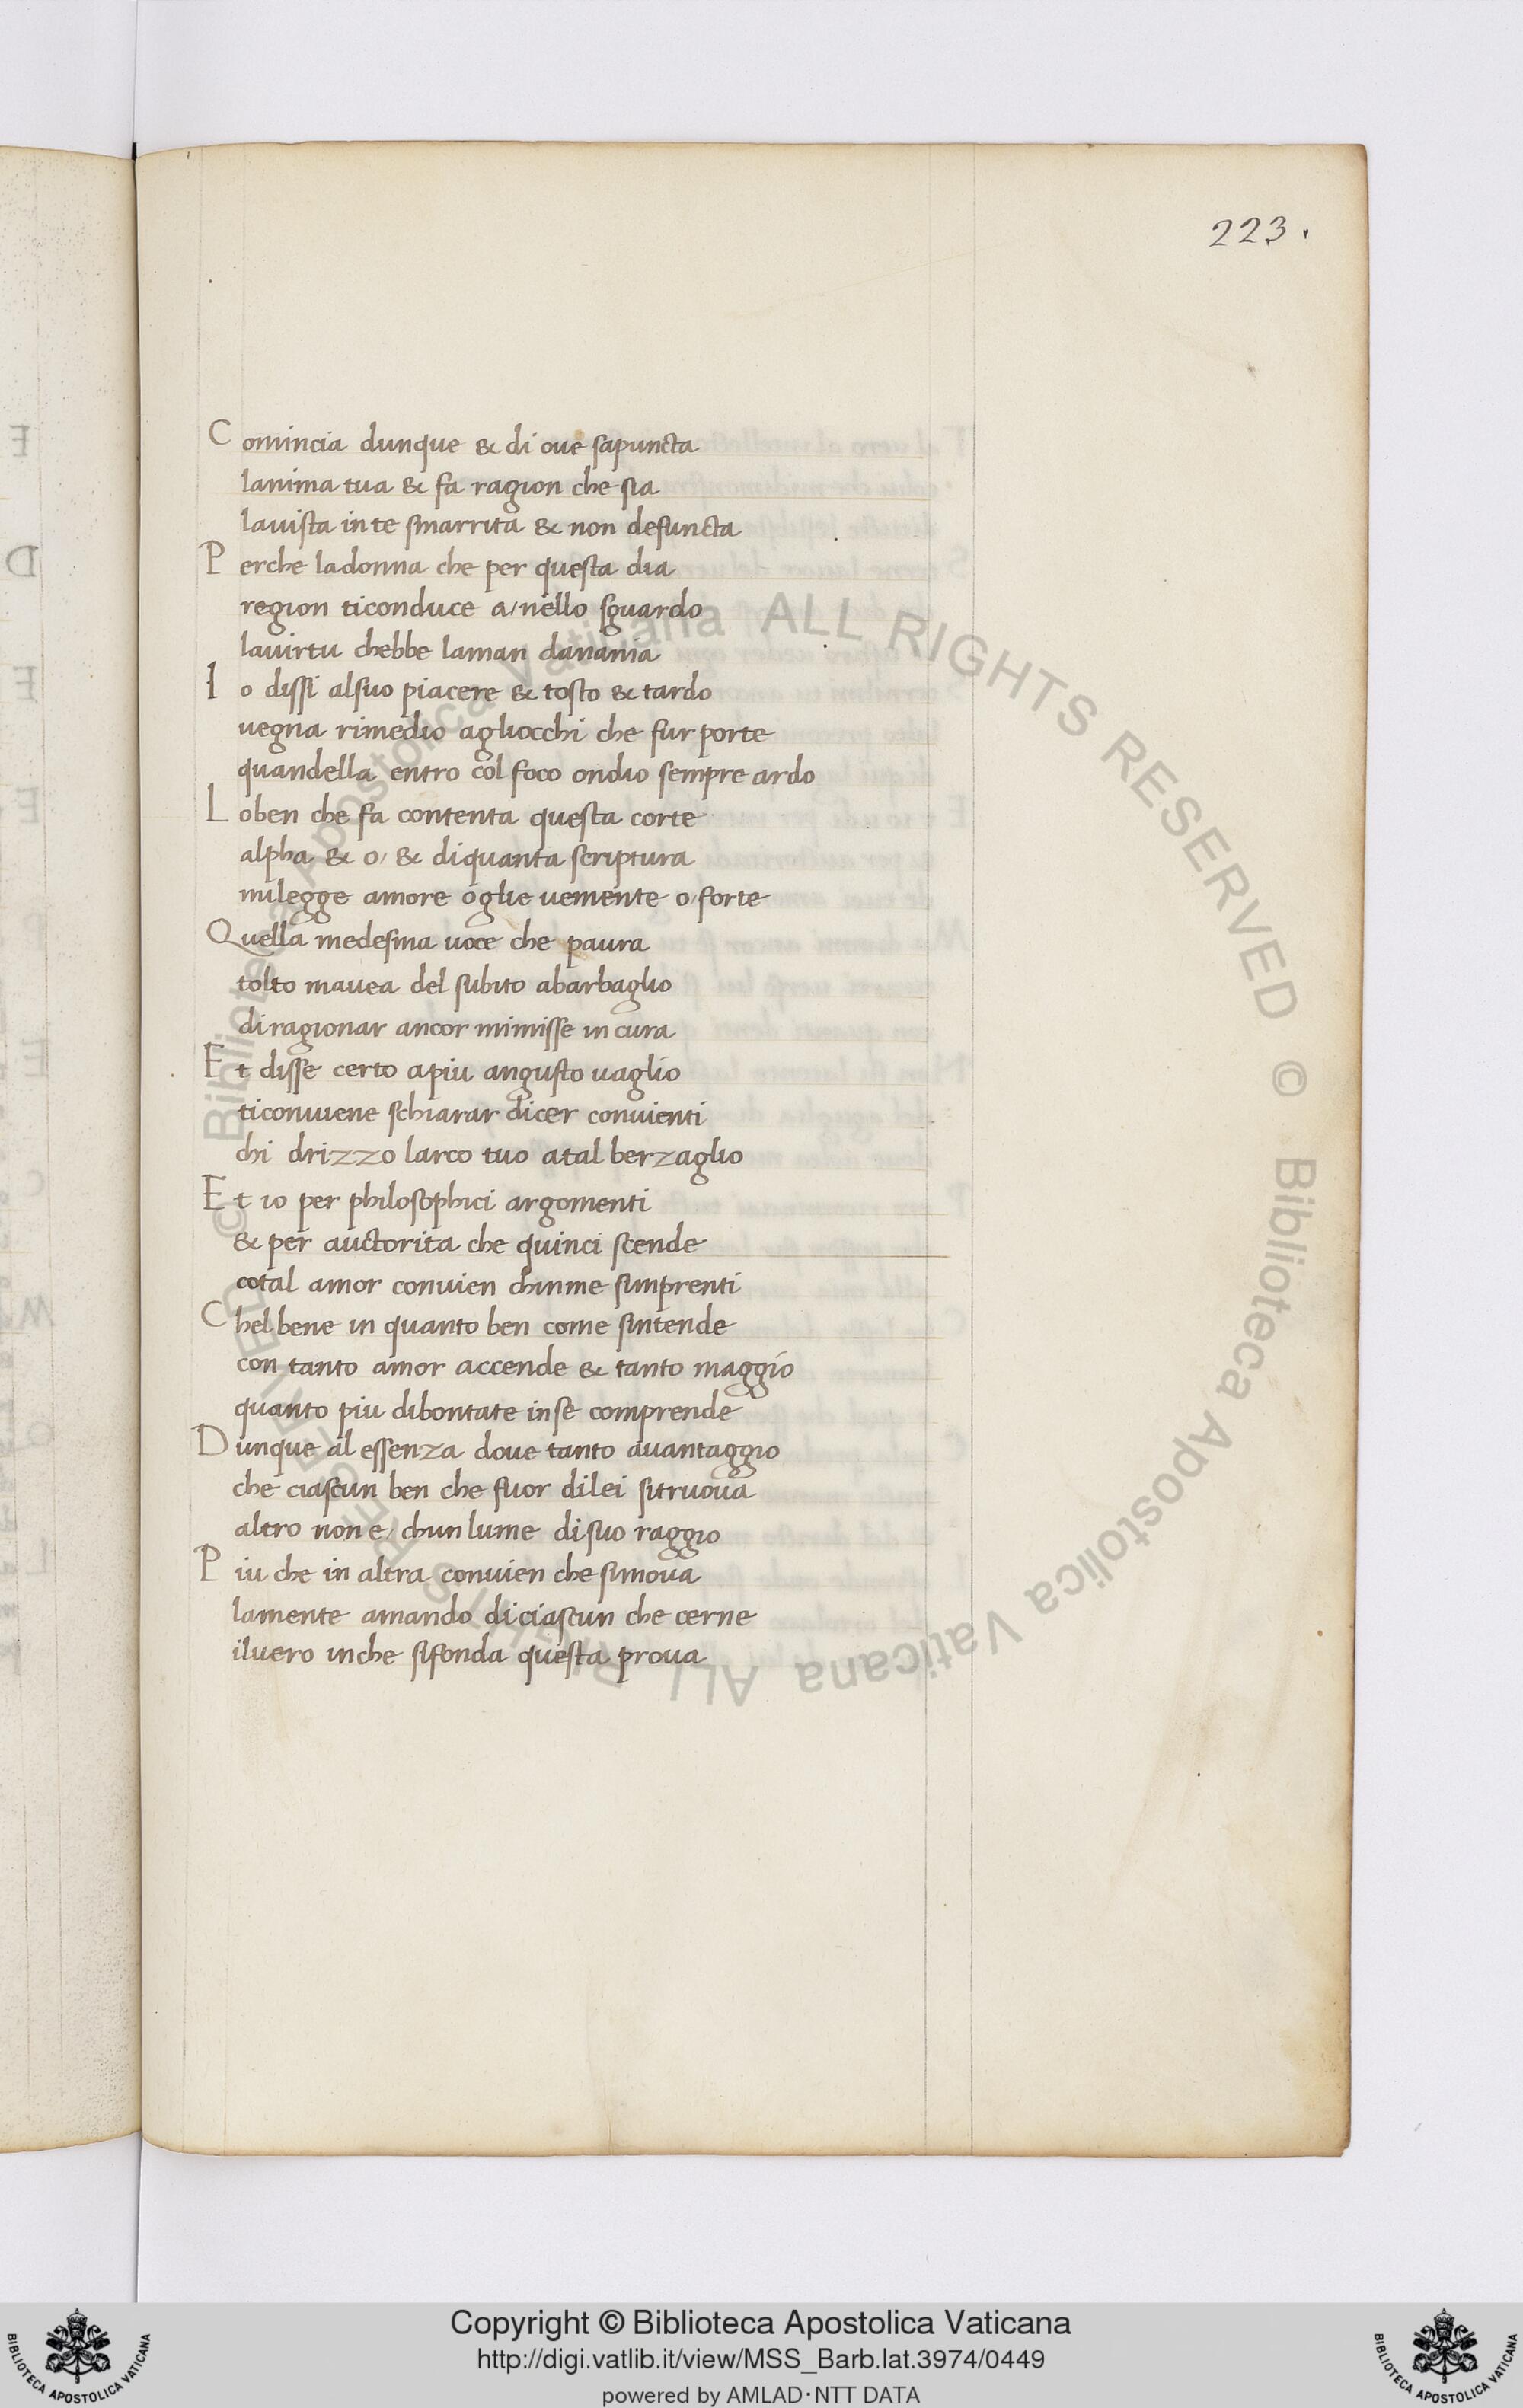 223.
Comincia dunque & di oue sapuncta
lanima tua & fa ragion che sia
lauista in te smarrita & non defuncta
Perche ladonna che per questa dia
region ticonduce a/nello sguardo
lauirtu chebbe laman danania
Io dissi alsuo piacere & tosto & tardo
uegna rimedio agliocchi che fur porte
quandella entro col foco ondio sempre ardo
Loben che fa contenta questa corte
alpha & o/ & diquanta scriptura
milegge amore oglie uemente o/forte
Quella medesma uoce che paura
tolto mauea del subito abarbaglio
diragionar ancor mimisse in cura
Et disse certo apiu angusto uaglio
ticonuiene schiarar dicer conuienti
chi drizzo larco tuo atal berzaglio
Et io per philosophici argomenti
& per auctorita che quinci scende
cotal amor conuien chinme simprenti
Chel bene in quanto ben come sintende
con tanto amor accende & tanto maggio
quanto piu dibontate inse comprende
Dunque al essenza doue tanto auantaggio
che ciascun ben che fuor dilei sitruoua
altro non e/ chun lume disuo raggio
Piu che in altra conuien che simoua
lamente amando diciascun che cerne
iluero inche sifonda questa proua
© Biblioteca Apostolica Vaticana ALL RIGHTS RESERVED © Biblioteca Apostolica Vaticana ALL RIGHTS RESERVED
Copyright © Biblioteca Apostolica Vaticana
http://digi.vatlib.it/view/MSS_Barb.lat.3974/0449
powered by AMLAD·NTT DATA
BIBLIOTECA APOSTOLICA VATICANA
BIBLIOTECA APOSTOLICA VATICANA